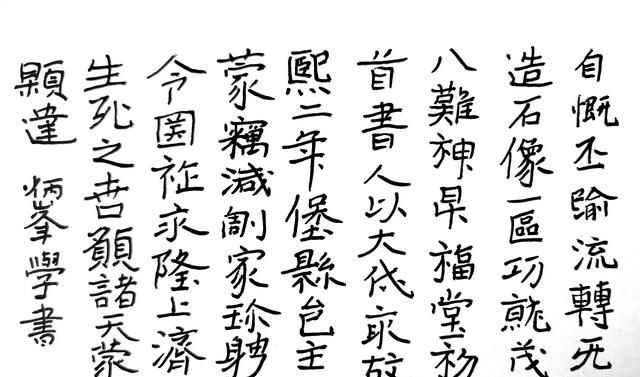 自慨丕踰流轉无
造石像一區功就茂
八難神昇福堂初
首書人以大代求故
熙二年堡縣邑主
蒙竊減割家珍聘
令國祚永隆上濟
生死之苦願諸天蒙
顯達 炳峯學書